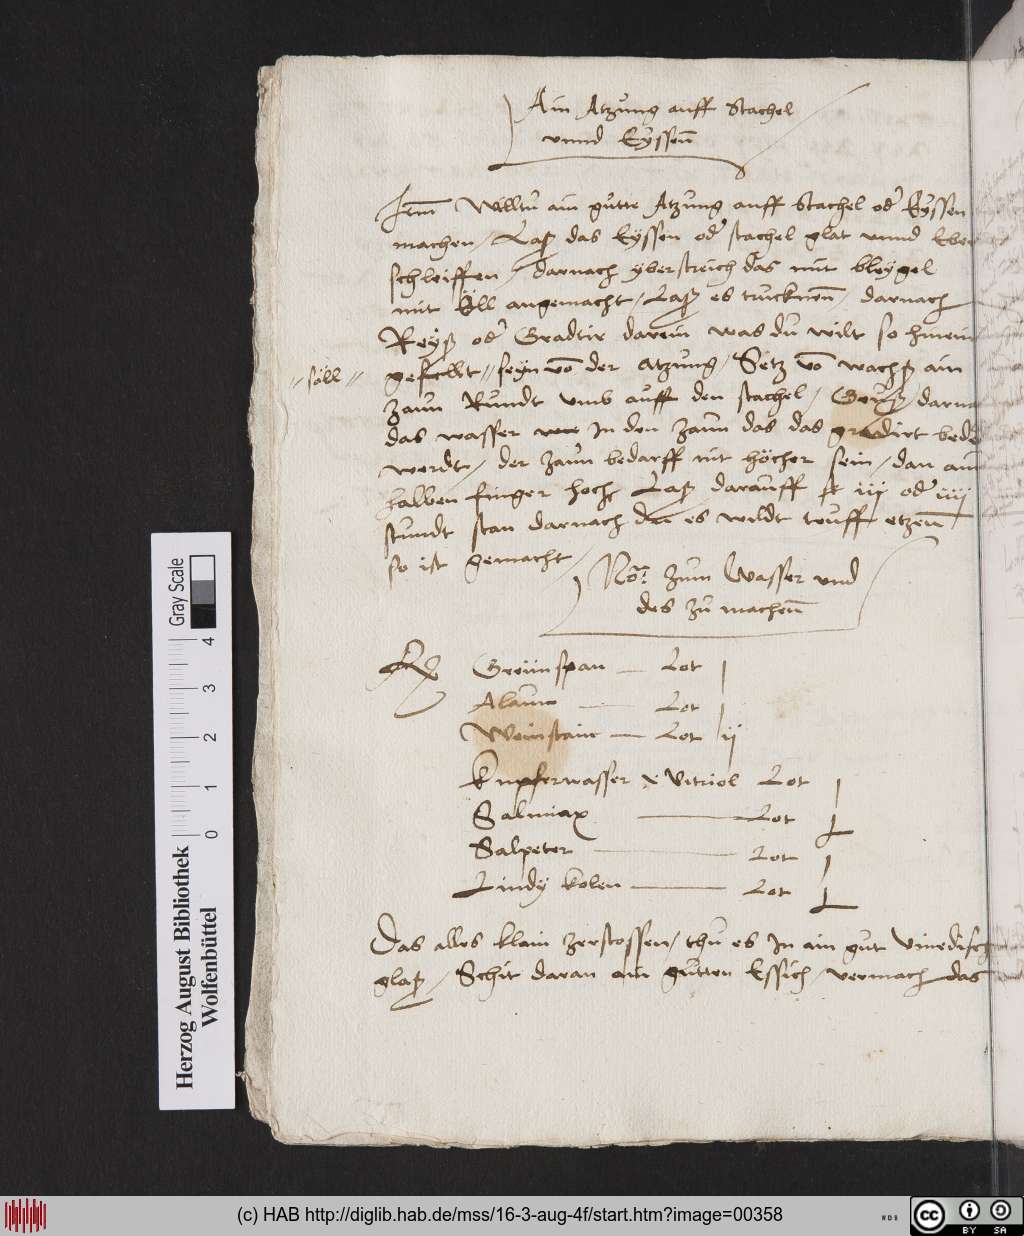 Ain Atzung auff Stachel
vnnd Eyssen
Item Welltu ain gutte Atzung auff Stachel oder Eyssen
machen / Laß das Eyssen oder stachel glat vnnd Eben
schleiffen / darnach yberstreich das mit bleygel
mit Öll angemacht / Laß es trucknen / darnach
Reyß oder Gradtir darein was du wilt so hinein
// soll //
geseellt // seyn von der atzung / Setz von wachß ain
Zaun Rundt vmb auff den stachel / Geuß darnach
das wasser In den Zaun das das gradirt bedeckt
werdt / der Zaun bedarff nit höcher sein / dan ain
halben finger hoch / Laß darauff iij oder iiij
stundt stan darnach du es wildt teuff etzen
so ist gemacht /
No: Zum Wasser vnd
des zu machen
Rx Grünspan — Lot j
Alaun — Lot j
Weinstain — Lot ij
Kupferwasser Vitriol Lot j
Salmiax — Lot
Salpeter — Lot j
Lindy kolen — Lot
Das alles klain Zerstossen / thu es In ain gut Vinedisch
glaß / Schit daran ain gutten Essich / vermach das
Herzog August Bibliothek
Wolfenbüttel
0 1 2 3 4
Gray Scale
(c) HAB http://diglib.hab.de/mss/16-3-aug-4f/start.htm?image=00358
WDB
cc BY SA